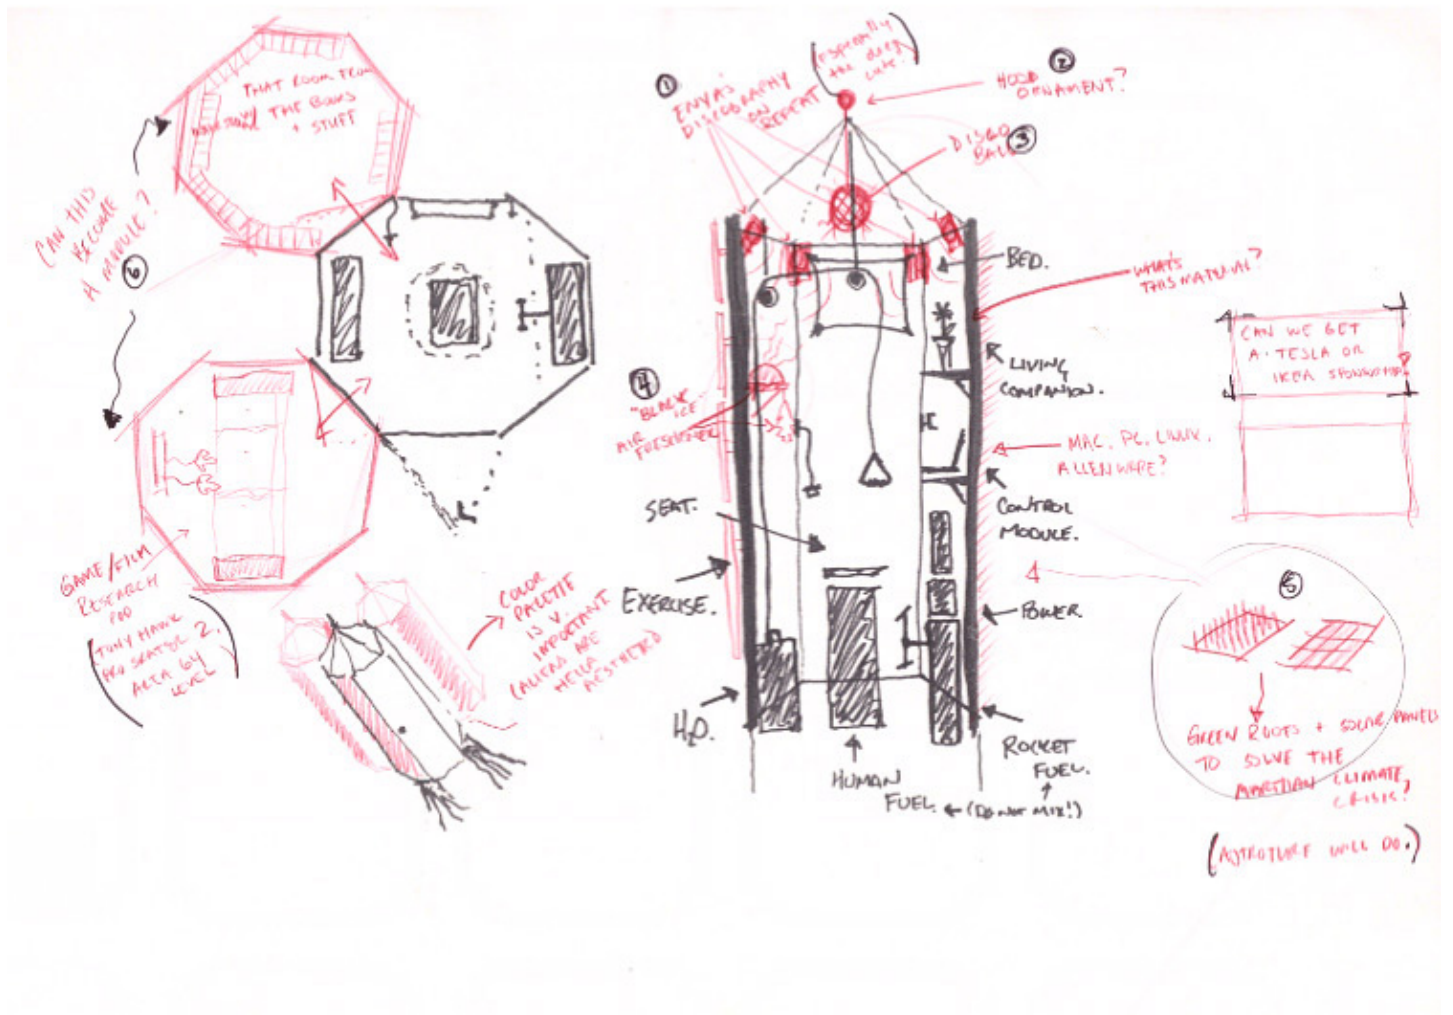 THAT ROOM FROM
THE BOOKS
+ STUFF
CAN THIS
BECOME
A MODULE?
6
GAME/FILM
RESEARCH
FOR
(TONY HAWK
PRO SKATER 2,
AREA 64
LEVEL)
COLOR
PALETTE
IS V.
IMPORTANT
(ALIENS ARE
HELLA
AESTHETES)
1
ENYA'S
DISCOGRAPHY
ON
REPEAT
(ESPECIALLY
THE DEEP
CUTS!)
2
HOOD
ORNAMENT?
3
DISCO
BALL
BED.
WHAT'S
THIS MATERIAL?
LIVING
COMPANION.
MAC, PC, LINUX,
ALIENWARE?
CONTROL
MODULE.
POWER.
ROCKET
FUEL.
← (DO NOT MIX!)
HUMAN
FUEL.
H2O.
EXERCISE.
SEAT.
4
"BLACK
ICE"
AIR
FRESHENER
CAN WE GET
A TESLA OR
IKEA SPONSORSHIP
5
GREEN ROOTS + SOLAR PANELS
TO SOLVE THE
MARTIAN CLIMATE
CRISIS?
(ASTROTURF WILL DO.)